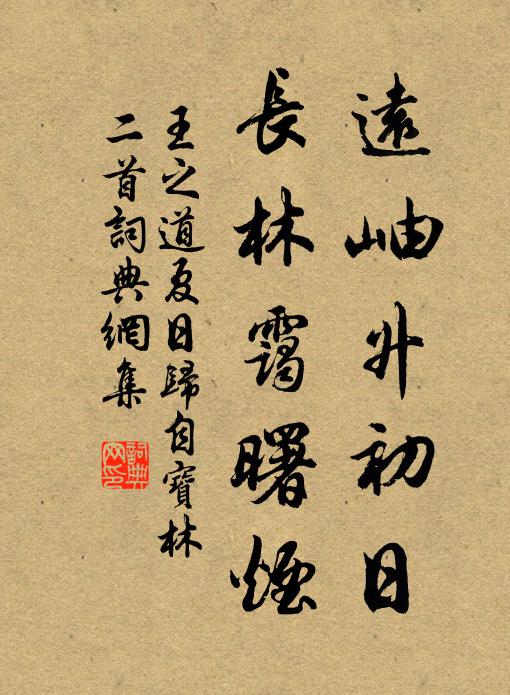 遠岫升初日
長林靄曙煙
王之道夏日歸自寶林
二首詞典網集
詞典
网印